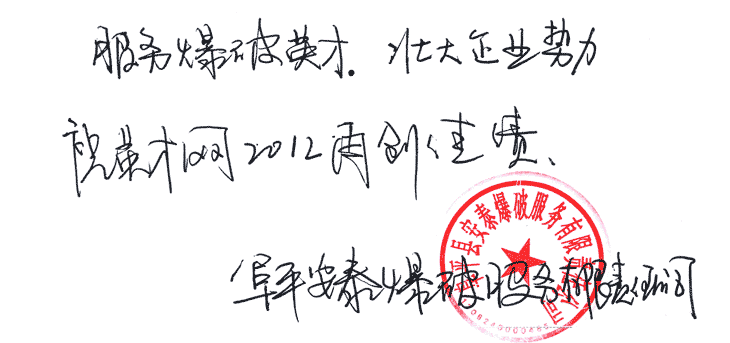 服务爆破英才.壮大企业势力
祝英才网2012再创佳责、
阜平县安泰爆破服务有限责任公司
阜平安泰爆破服务有限责任公司